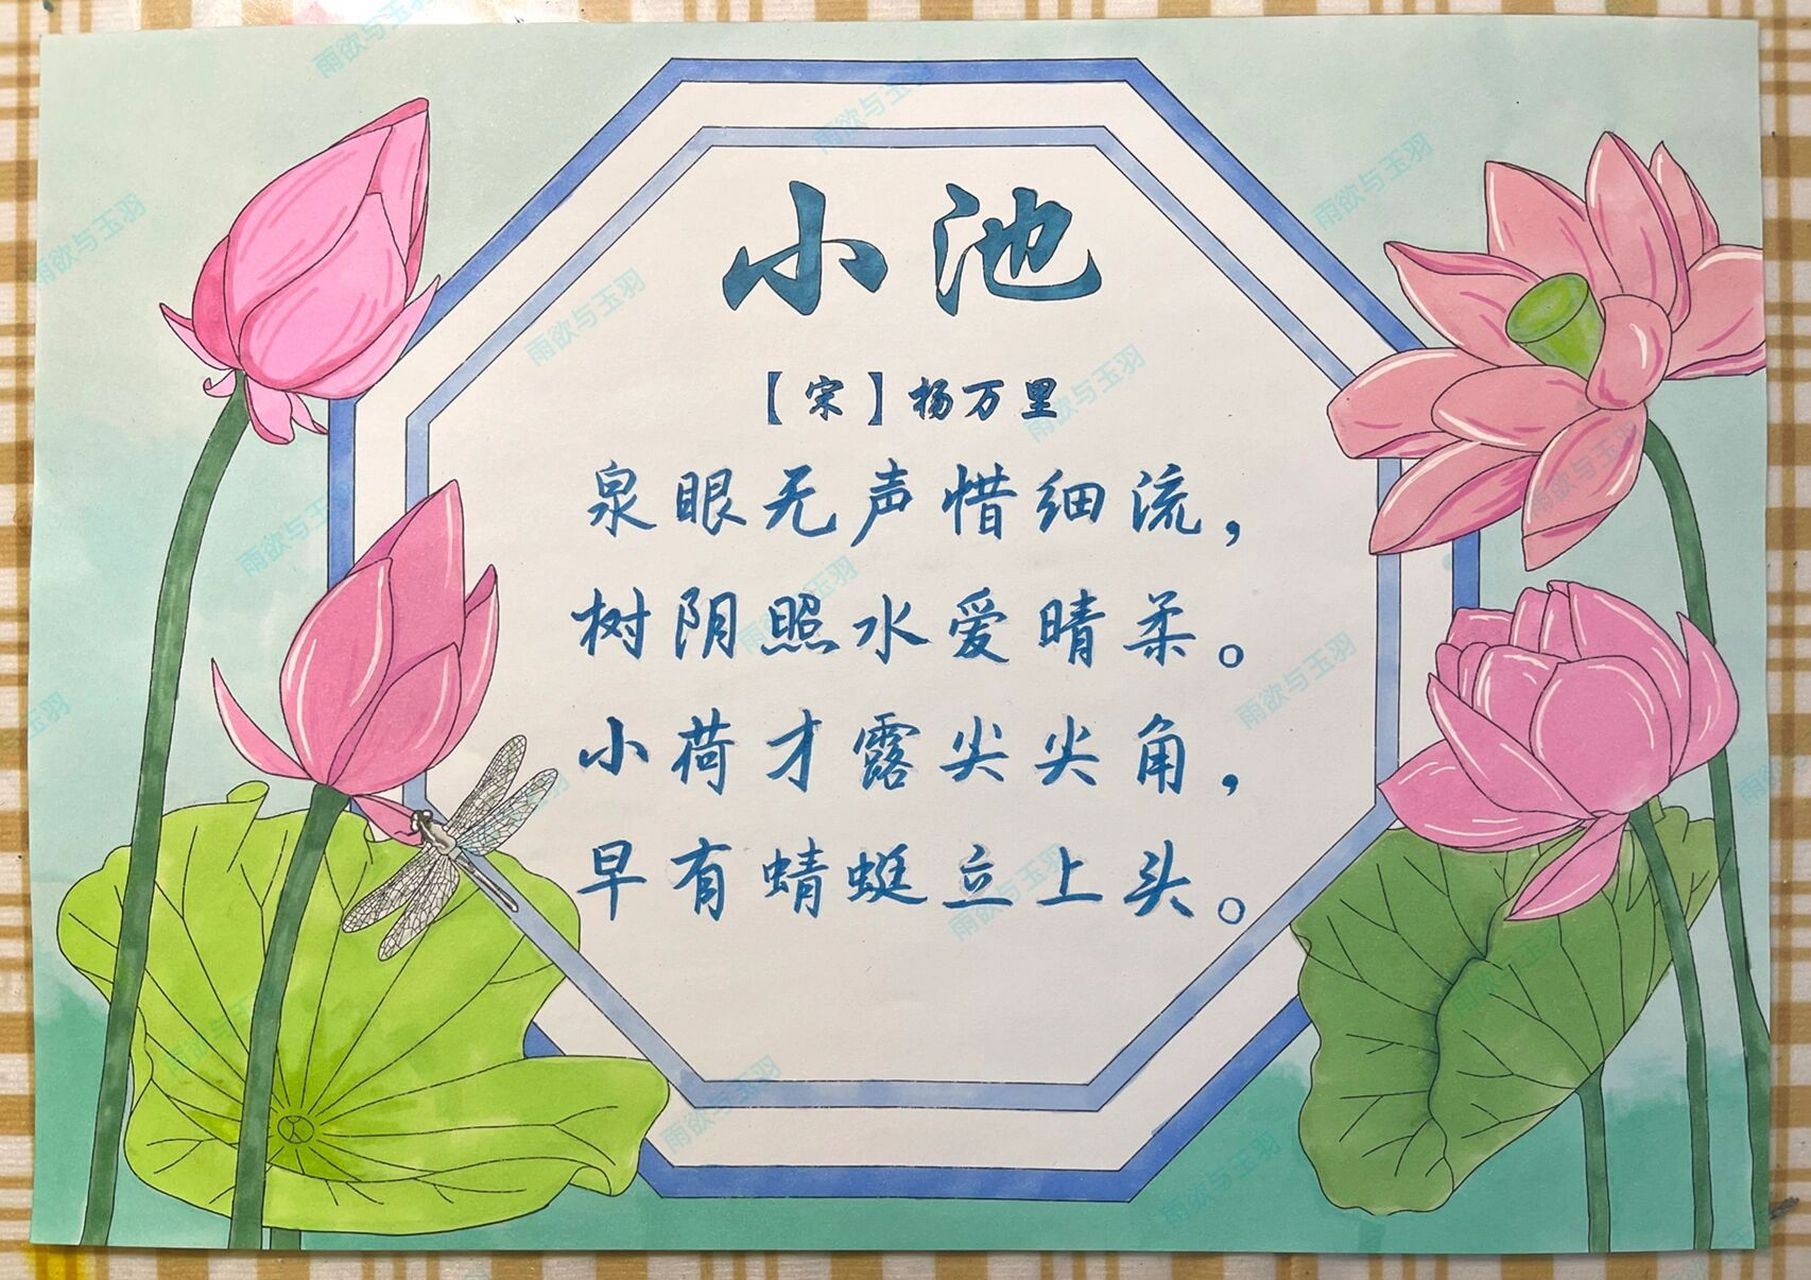 小池
【宋】杨万里
泉眼无声惜细流，
树阴照水爱晴柔。
小荷才露尖尖角，
早有蜻蜓立上头。
雨欲与玉羽